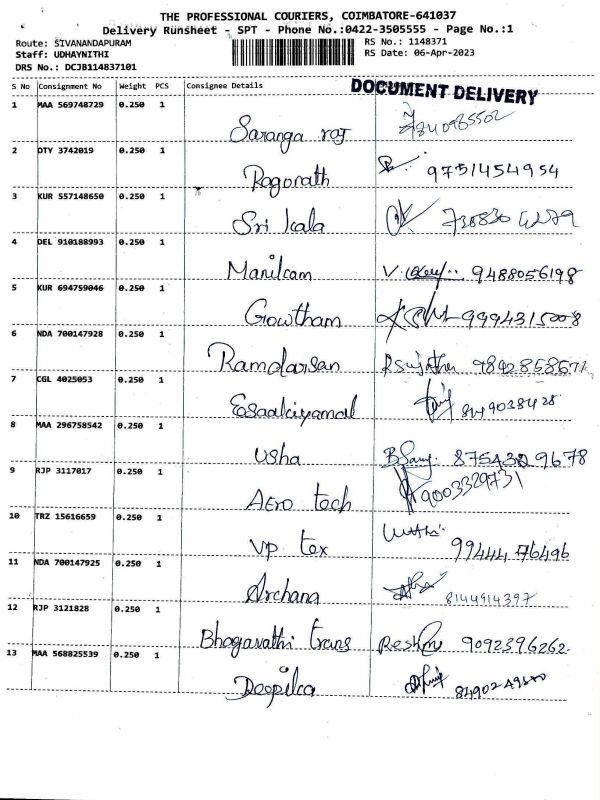 THE PROFESSIONAL COURIERS, COIMBATORE-641037
Delivery Runsheet - SPT - Phone No.:0422-3505555 - Page No.:1
Route: SIVANANDAPURAM RS No.: 1148371
Staff: UDHAYNITHI RS Date: 06-Apr-2023
DRS No.: DCJB114837101
S No Consignment No Weight PCS Consignee Details DOCUMENT DELIVERY
1 MAA 569748729 0.250 1
Saranga raj
2 DTY 3742019 0.250 1
Ragorath 9751454954
3 KUR 557148650 0.250 1
Sri kala
4 DEL 910188993 0.250 1
Manikam 9488056198
5 KUR 694759046 0.250 1
Gowtham 9994315008
6 NDA 700147928 0.250 1
Ramdarsan
7 CGL 4025053 0.250 1
Esaakiyamal
8 MAA 296758542 0.250 1
Usha
9 RJP 3117017 0.250 1
Aero tech 9003329731
10 TRZ 15616659 0.250 1
VP tex 99444 76496
11 NDA 700147925 0.250 1
Archana 8144914397
12 RJP 3121828 0.250 1
Bhagavathi trans Reshm 9092396262
13 MAA 568825539 0.250 1
Deepika